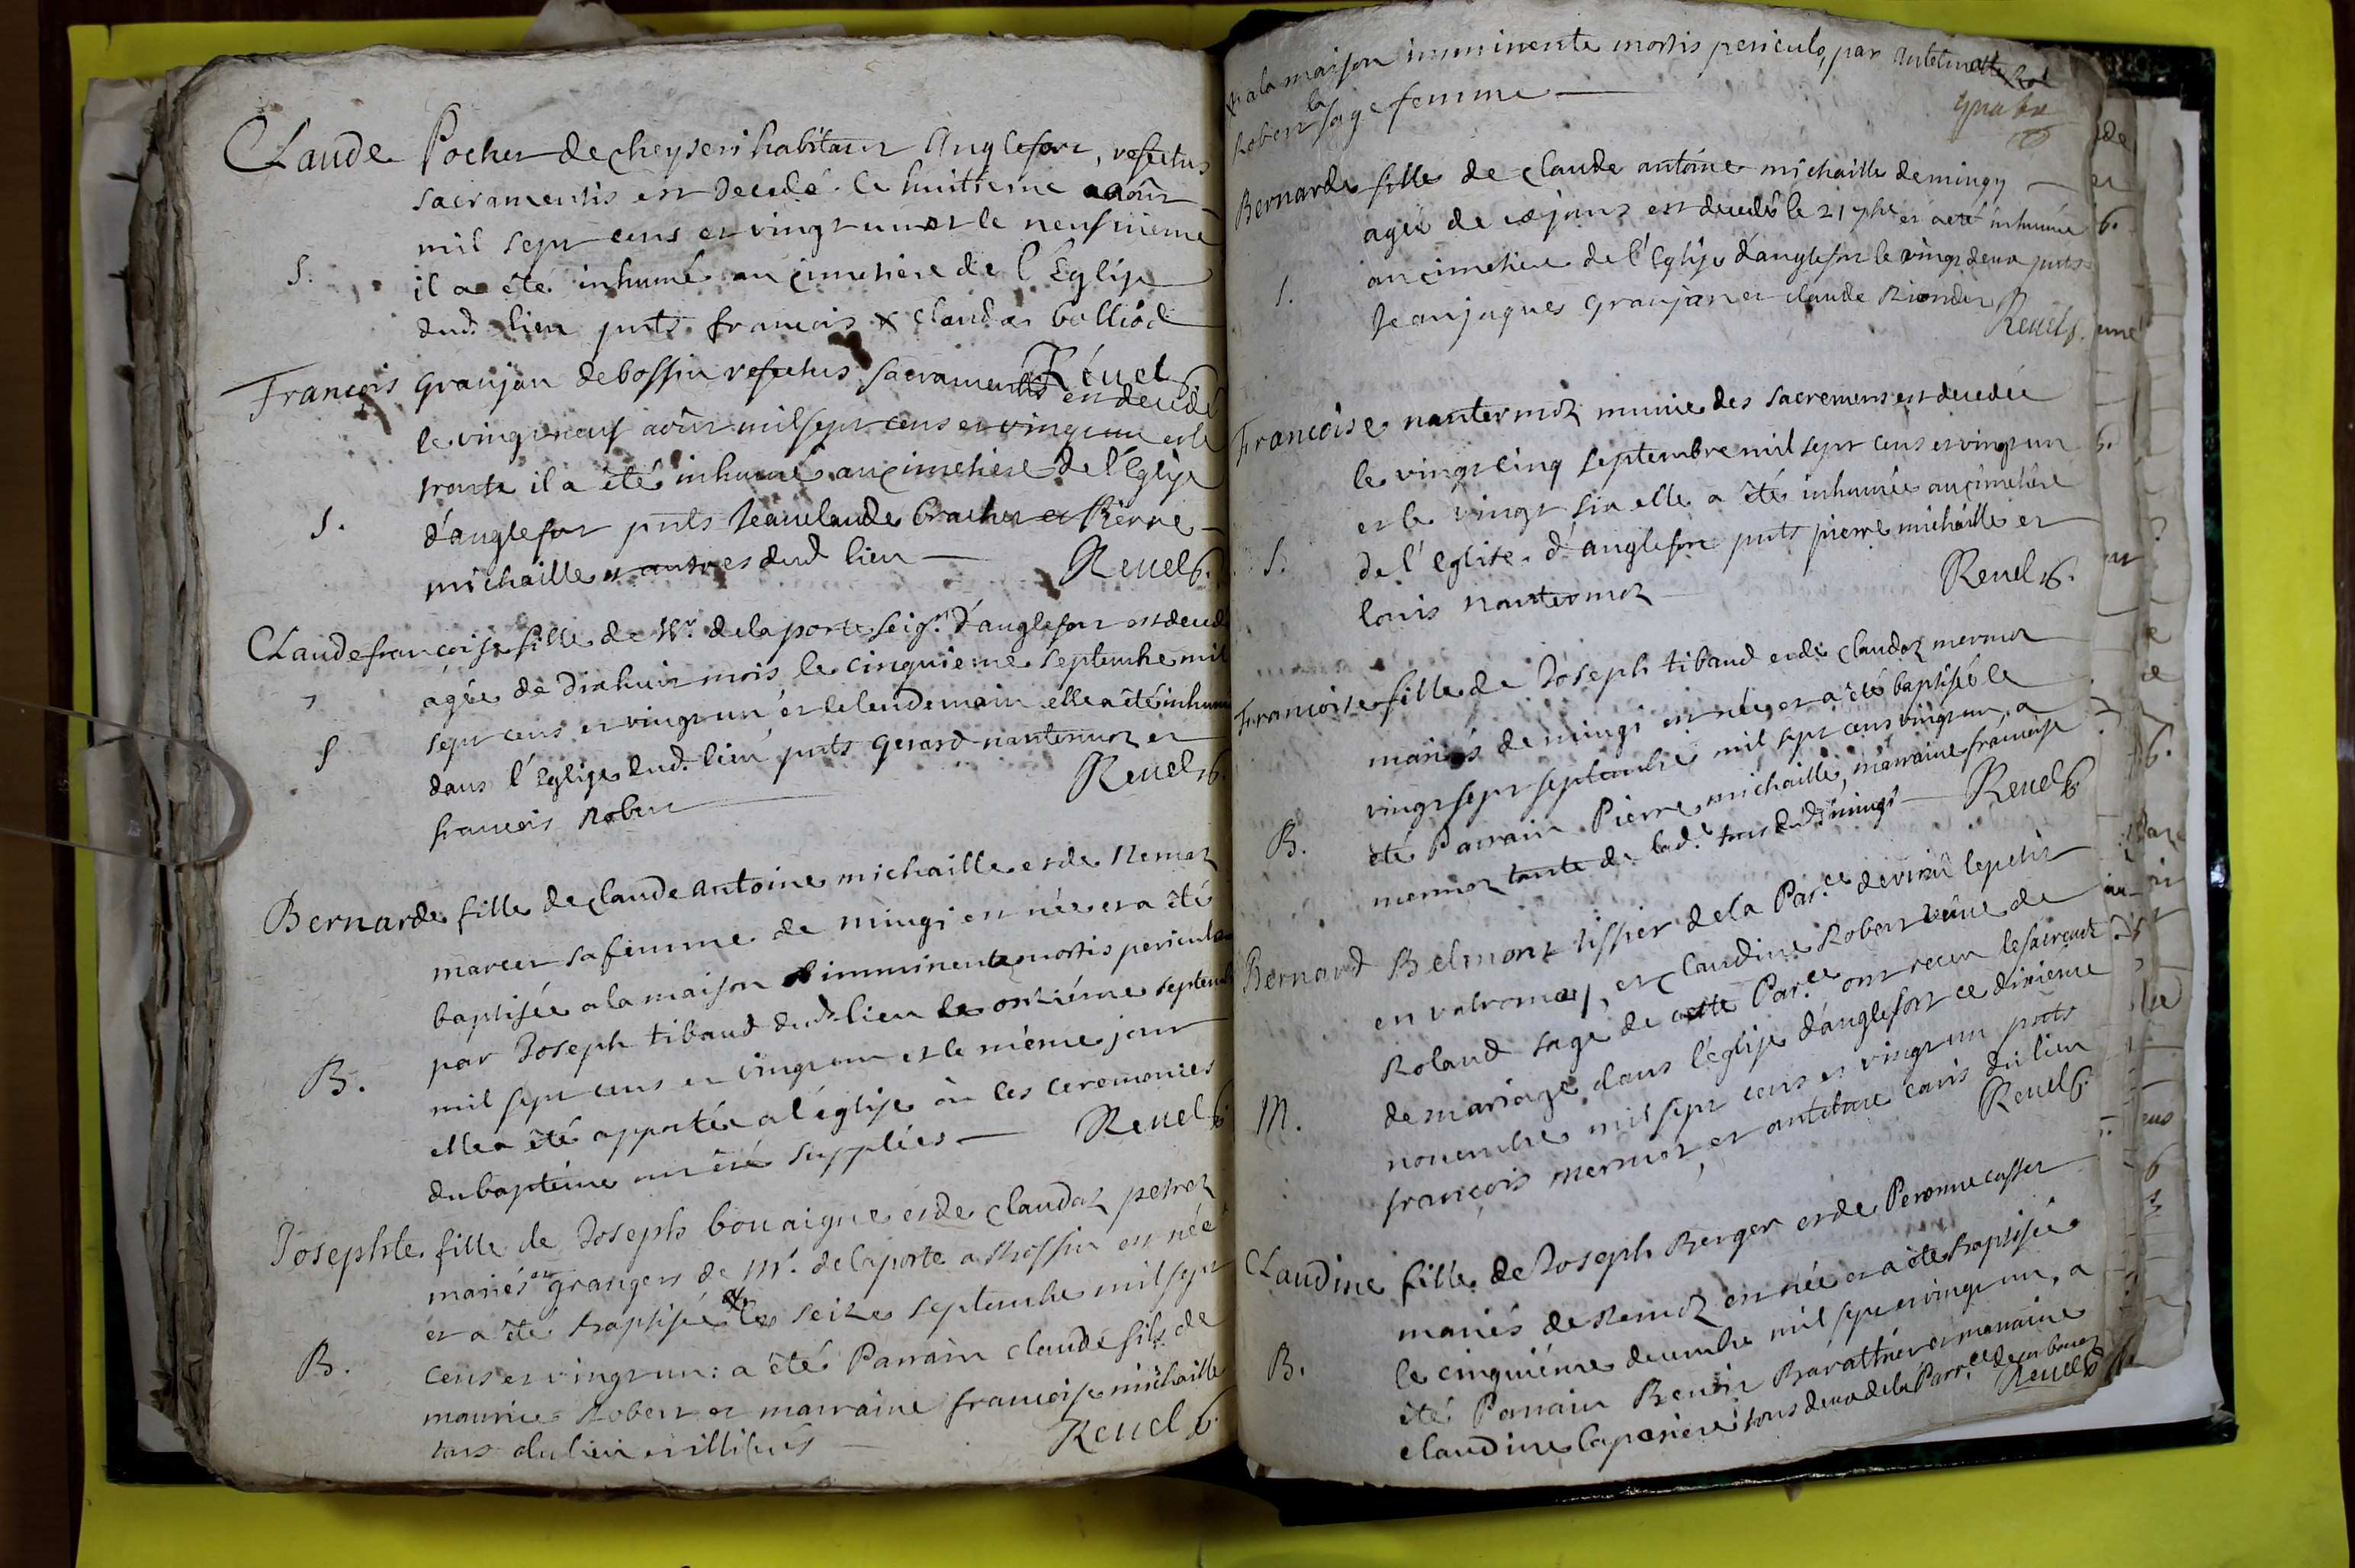 Claude Pocher de cheyseri habitant Anglefort, refectus
sacramentis est decedé le huitieme aoûst
mil sept cens et vingt un et le neufvieme
S. il a été inhumé au cimetiere de l'Eglise
dud. lieu pnts françois x claudas balliod
Reuel
François granjan de bossin refectus sacramentis est decedé
le vingt neuf aoûst mil sept cens et vingt un et le
trente il a été inhumé au cimetiere de l'Eglise
S. d'anglefort pnts Jean claude brachet et Pierre
michaille et autres dud lieu — Reuel
Claude françoise fille de Mr. de la porte seigr. d'anglefort est decedée
agée de dixhuit mois le cinquieme septembre mil
sept cens et vingt un et le lendemain elle a été inhumée
S dans l'Eglise dud. lieu pnts gerard nantermoz et
françois Robert — Reuel
Bernarde fille de claude antoine michaille et de Remaz
marcet sa femme de mingi est née et a été
baptisée a la maison imminente mortis periculo
par Joseph tibaud dud lieu le onziéme septembre
B. mil sept cens et vingt un et le méme jour
elle a été apportée a l'église où les ceremonies
du baptéme ont été supplées — Reuel
Josephte fille de Joseph bouaigue et de claudaz petroz
mariés grangers de Mr. de la porte a Rhossin est née
et a été baptisée le seize septembre mil sept
B. cens et vingt un: a été Parrain claude fils de
maurice Robert et marraine françoise michaille
tous du lieu et illiterés — Reuel
x a la maison imminente mortis periculo, par antelmette
Robert la sage femme —
Bernarde fille de claude antoine michaille de mingy —
agée de jours est decedée le 21 7bre et a été inhumée
S. au cimetiere de l'Eglise d'anglefort le vingt deux pnts
Jean jaques granjan et claude Riondet
Reuel
Françoise nantermoz munie des sacremens est decedée
le vingt cinq septembre mil sept cens et vingt un
et le vingt six elle a été inhumée au cimetiére
S. de l'Eglise d'anglefort pnts pierre michaille et
louis nantermoz — Reuel
Françoise fille de Joseph tibaud et de claudaz mermoz
mariés de mingi est née, et a été baptisée le
vingt sept septembre mil sept cens vingt un, a
B. été Parrain Pierre michaille, marraine françoise
mermoz tante de lad. tous dud mingi — Reuel
Bernard Belmont tissier de la Par.ce de virieu le petit
en valromey, et Claudine Robert veuve de
Roland sage de cette Par.ce ont receu le sacrement
M. de mariage dans l'église d'anglefort ce dixieme
novembre mil sept cens et vingt un pnts
françois mermoz, et antelme caris du lieu
Reuel
Claudine fille de Joseph Berger et de Peronne casset
mariés de Remoz est née et a été baptisée
le cinquiéme decembre mil sept et vingt un, a
B. été Parrain Benoit Barathier et marraine
claudine laparière tous deux de la Parr.ce de corbonoz
Reuel